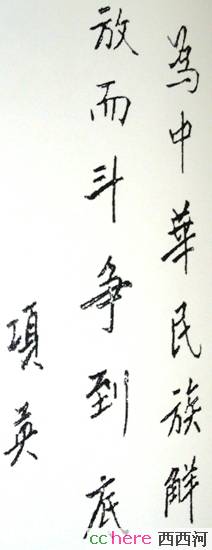 為中華民族解
放而斗争到底
項英
cchere 西西河